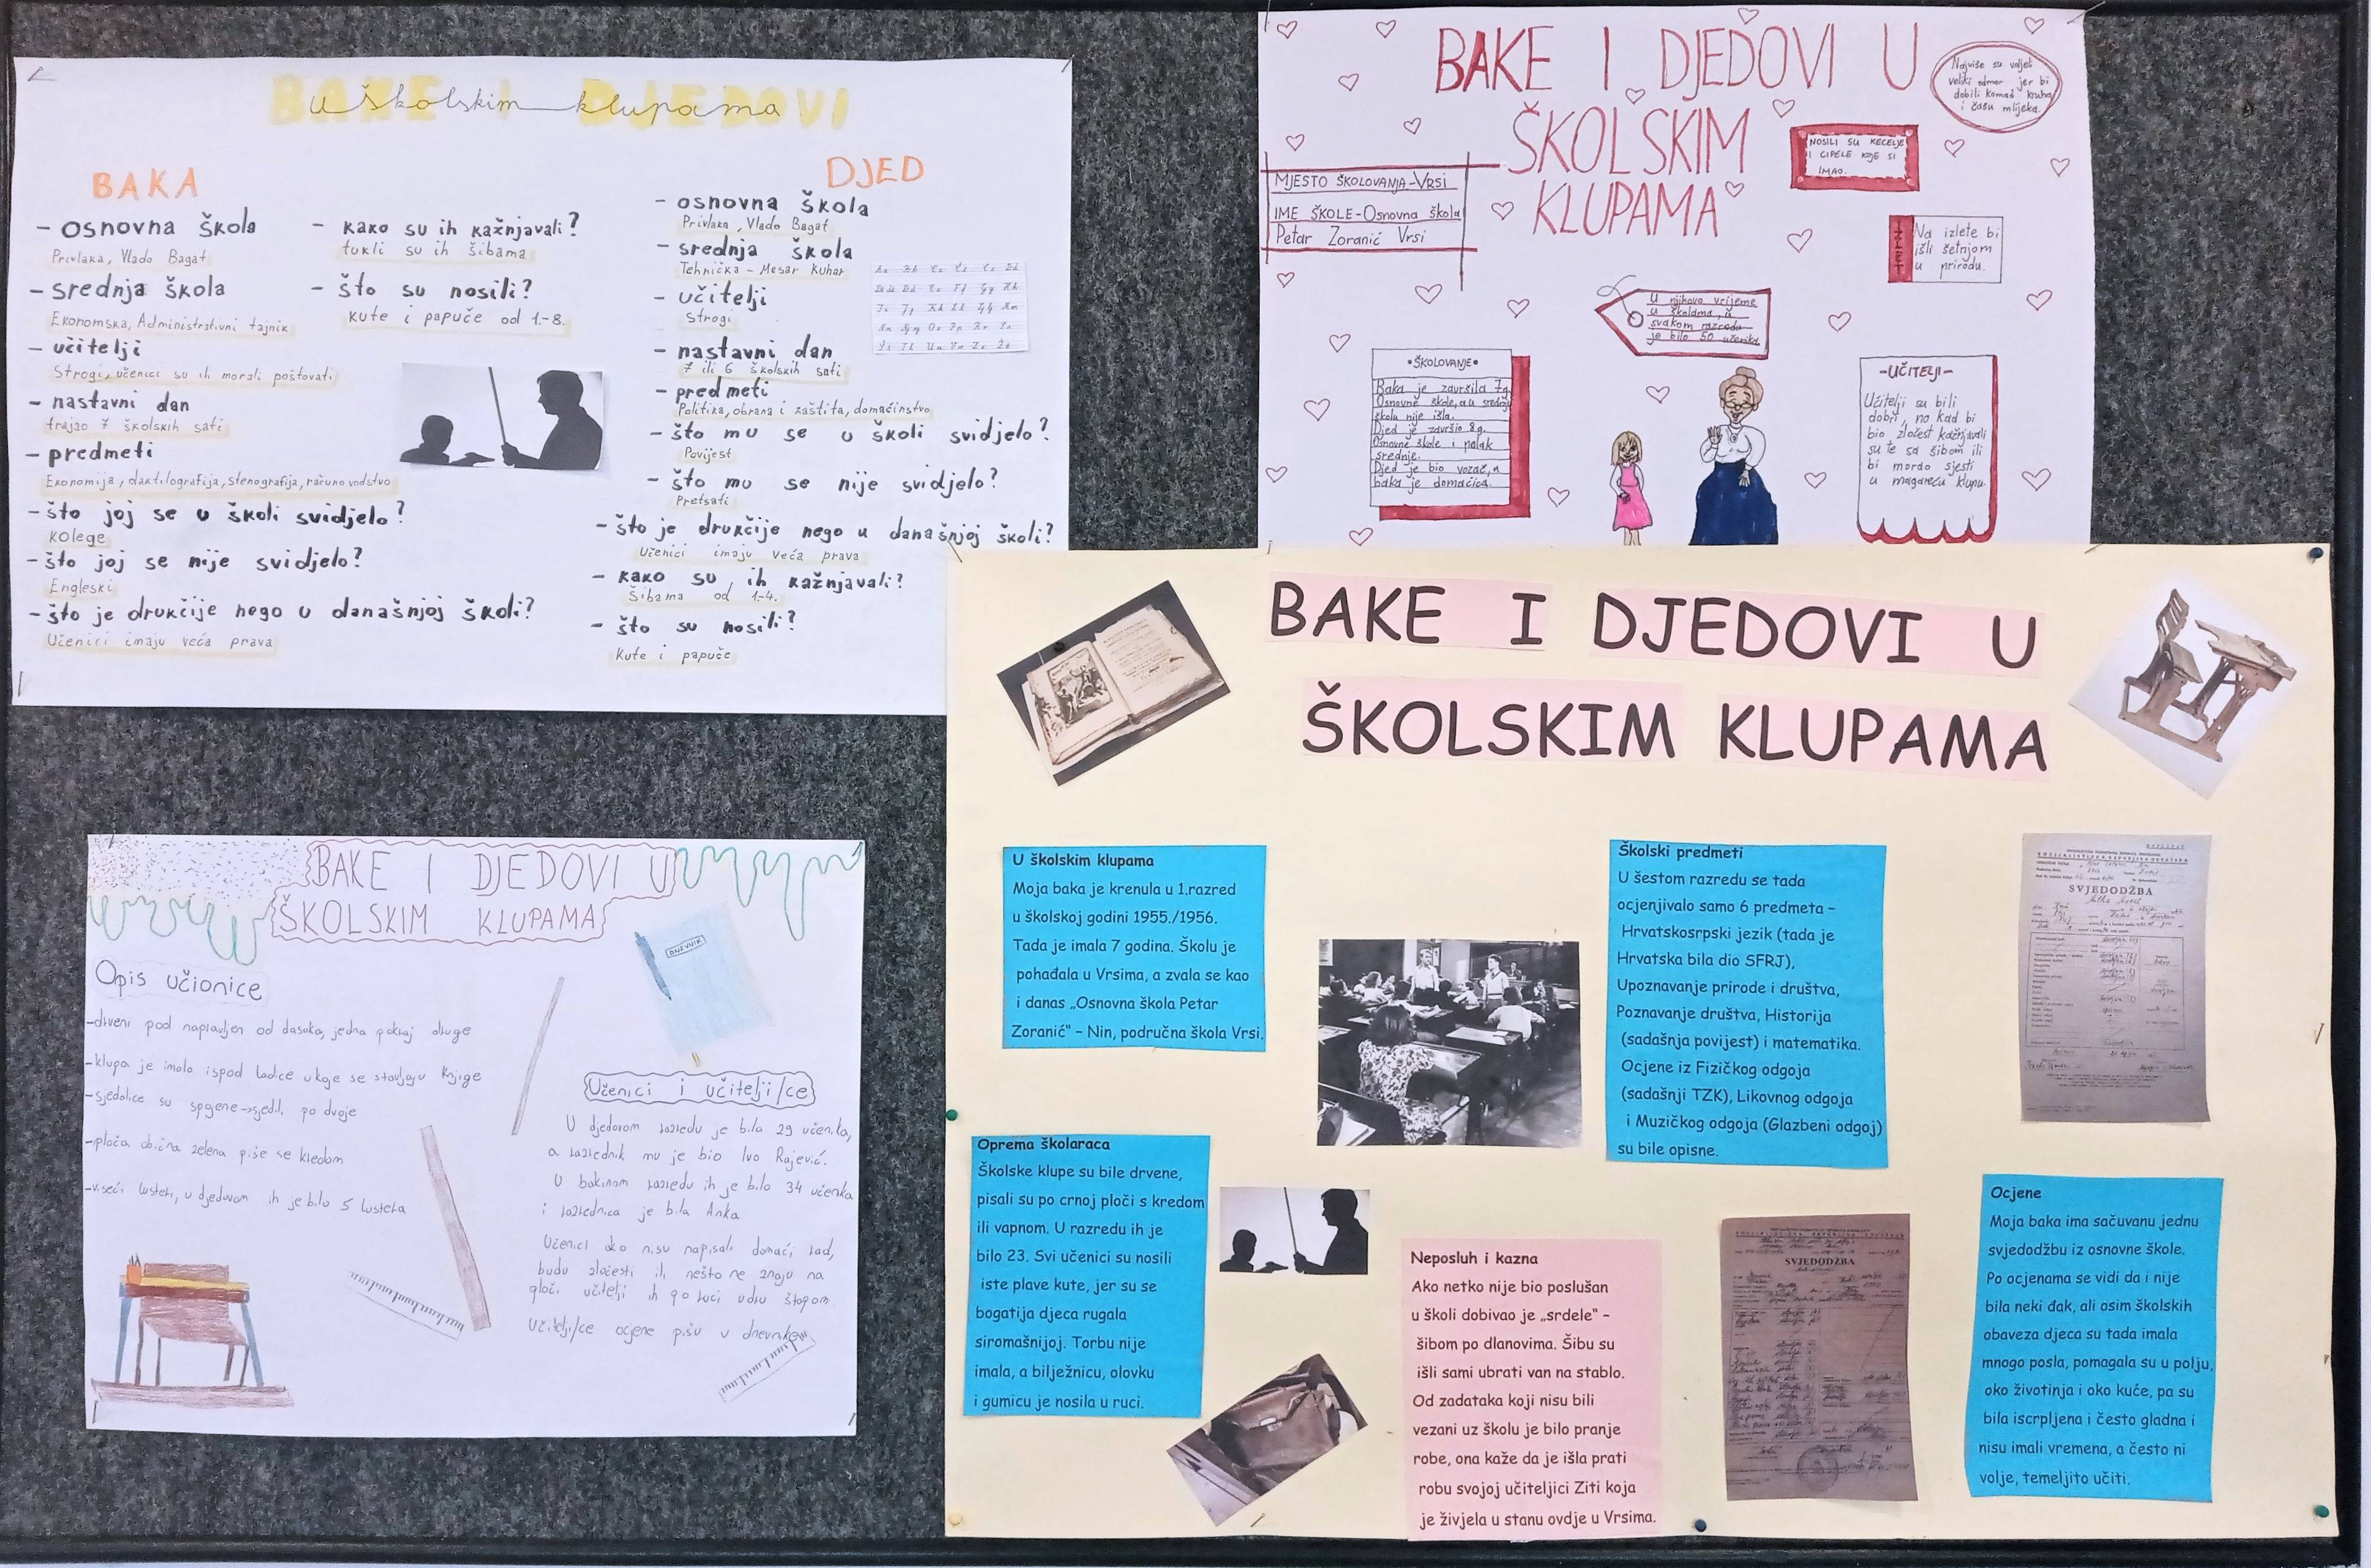 BAKE I DJEDOVI
u školskim klupama
BAKA
- osnovna škola
Privlaka, Vlado Bagat
- srednja škola
Ekonomska, Administrativni tajnik
- učitelji
Strogi, učenici su ih morali poštovati
- nastavni dan
trajao 7 školskih sati
- predmeti
Ekonomija, daktilografija, stenografija, računovodstvo
- što joj se u školi svidjelo?
Kolege
- što joj se nije svidjelo?
Engleski
- što je drukčije nego u današnjoj školi?
Učenici imaju veća prava
- kako su ih kažnjavali?
tukli su ih šibama
- što su nosili?
Kute i papuče od 1.-8.
DJED
- osnovna škola
Privlaka, Vlado Bagat
- srednja škola
Tehnička - Mesar Kuhar
- učitelji
Strogi
- nastavni dan
7 ili 6 školskih sati
- predmeti
Politika, obrana i zaštita, domaćinstvo
- što mu se u školi svidjelo?
Povijest
- što mu se nije svidjelo?
Pretsati
- što je drukčije nego u današnjoj školi?
Učenici imaju veća prava
- kako su ih kažnjavali?
Šibama od 1.-4.
- što su nosili?
Kute i papuče
BAKE I DJEDOVI U
ŠKOLSKIM
KLUPAMA
Najviše su voljeli
veliki odmor jer bi
dobili komad kruha
i čašu mlijeka.
NOSILI SU KECELJE
I CIPELE KOJE SI
IMAO.
MJESTO ŠKOLOVANJA-Vrsi
IME ŠKOLE-Osnovna škola
Petar Zoranić Vrsi
Na izlete bi
išli šetnjom
u prirodu.
U njihovo vrijeme
u školama, u
svakom razredu
je bilo 50 učenika
•ŠKOLOVANJE•
Baka je završila 7g.
Osnovne škole, a u srednju
školu nije išla.
Djed je završio 8g.
Osnovne škole i polak
srednje.
Djed je bio vozač, a
baka je domaćica.
-UČITELJI-
Učitelji su bili
dobri, no kad bi
bio zločest kažnjavali
su te sa šibom ili
bi morao sjesti
u magareću klupu.
BAKE I DJEDOVI U
ŠKOLSKIM KLUPAMA
Opis učionice
-drveni pod napravljen od dasaka, jedna pokraj druge
-klupa je imala ispod ladice u koje se stavljaju knjige
-sjedalice su spojene->sjedili po dvoje
-ploča obična zelena piše se kredom
-viseći lusteri, u djedovom ih je bilo 5 lustera
DNEVNIK
Učenici i učitelji/ce
U djedovom razredu je bilo 29 učenika,
a razrednik mu je bio Ivo Rajević.
U bakinom razredu ih je bilo 34 učenika
i razrednica je bila Anka
Učenici ako nisu napisali domaći rad,
budu zločesti ili nešto ne znaju na
ploči učitelji ih po ruci udru štapom
Učitelji/ce ocjene pišu u dnevnike
BAKE I DJEDOVI U
ŠKOLSKIM KLUPAMA
U školskim klupama
Moja baka je krenula u 1.razred
u školskoj godini 1955./1956.
Tada je imala 7 godina. Školu je
pohađala u Vrsima, a zvala se kao
i danas „Osnovna škola Petar
Zoranić“ – Nin, područna škola Vrsi.
Školski predmeti
U šestom razredu se tada
ocjenjivalo samo 6 predmeta –
Hrvatskosrpski jezik (tada je
Hrvatska bila dio SFRJ),
Upoznavanje prirode i društva,
Poznavanje društva, Historija
(sadašnja povijest) i matematika.
Ocjene iz Fizičkog odgoja
(sadašnji TZK), Likovnog odgoja
i Muzičkog odgoja (Glazbeni odgoj)
su bile opisne.
SVJEDODŽBA
Oprema školaraca
Školske klupe su bile drvene,
pisali su po crnoj ploči s kredom
ili vapnom. U razredu ih je
bilo 23. Svi učenici su nosili
iste plave kute, jer su se
bogatija djeca rugala
siromašnijoj. Torbu nije
imala, a bilježnicu, olovku
i gumicu je nosila u ruci.
Neposluh i kazna
Ako netko nije bio poslušan
u školi dobivao je „srdele“ –
šibom po dlanovima. Šibu su
išli sami ubrati van na stablo.
Od zadataka koji nisu bili
vezani uz školu je bilo pranje
robe, ona kaže da je išla prati
robu svojoj učiteljici Ziti koja
je živjela u stanu ovdje u Vrsima.
SVJEDODŽBA
Ocjene
Moja baka ima sačuvanu jednu
svjedodžbu iz osnovne škole.
Po ocjenama se vidi da i nije
bila neki đak, ali osim školskih
obaveza djeca su tada imala
mnogo posla, pomagala su u polju,
oko životinja i oko kuće, pa su
bila iscrpljena i često gladna i
nisu imali vremena, a često ni
volje, temeljito učiti.